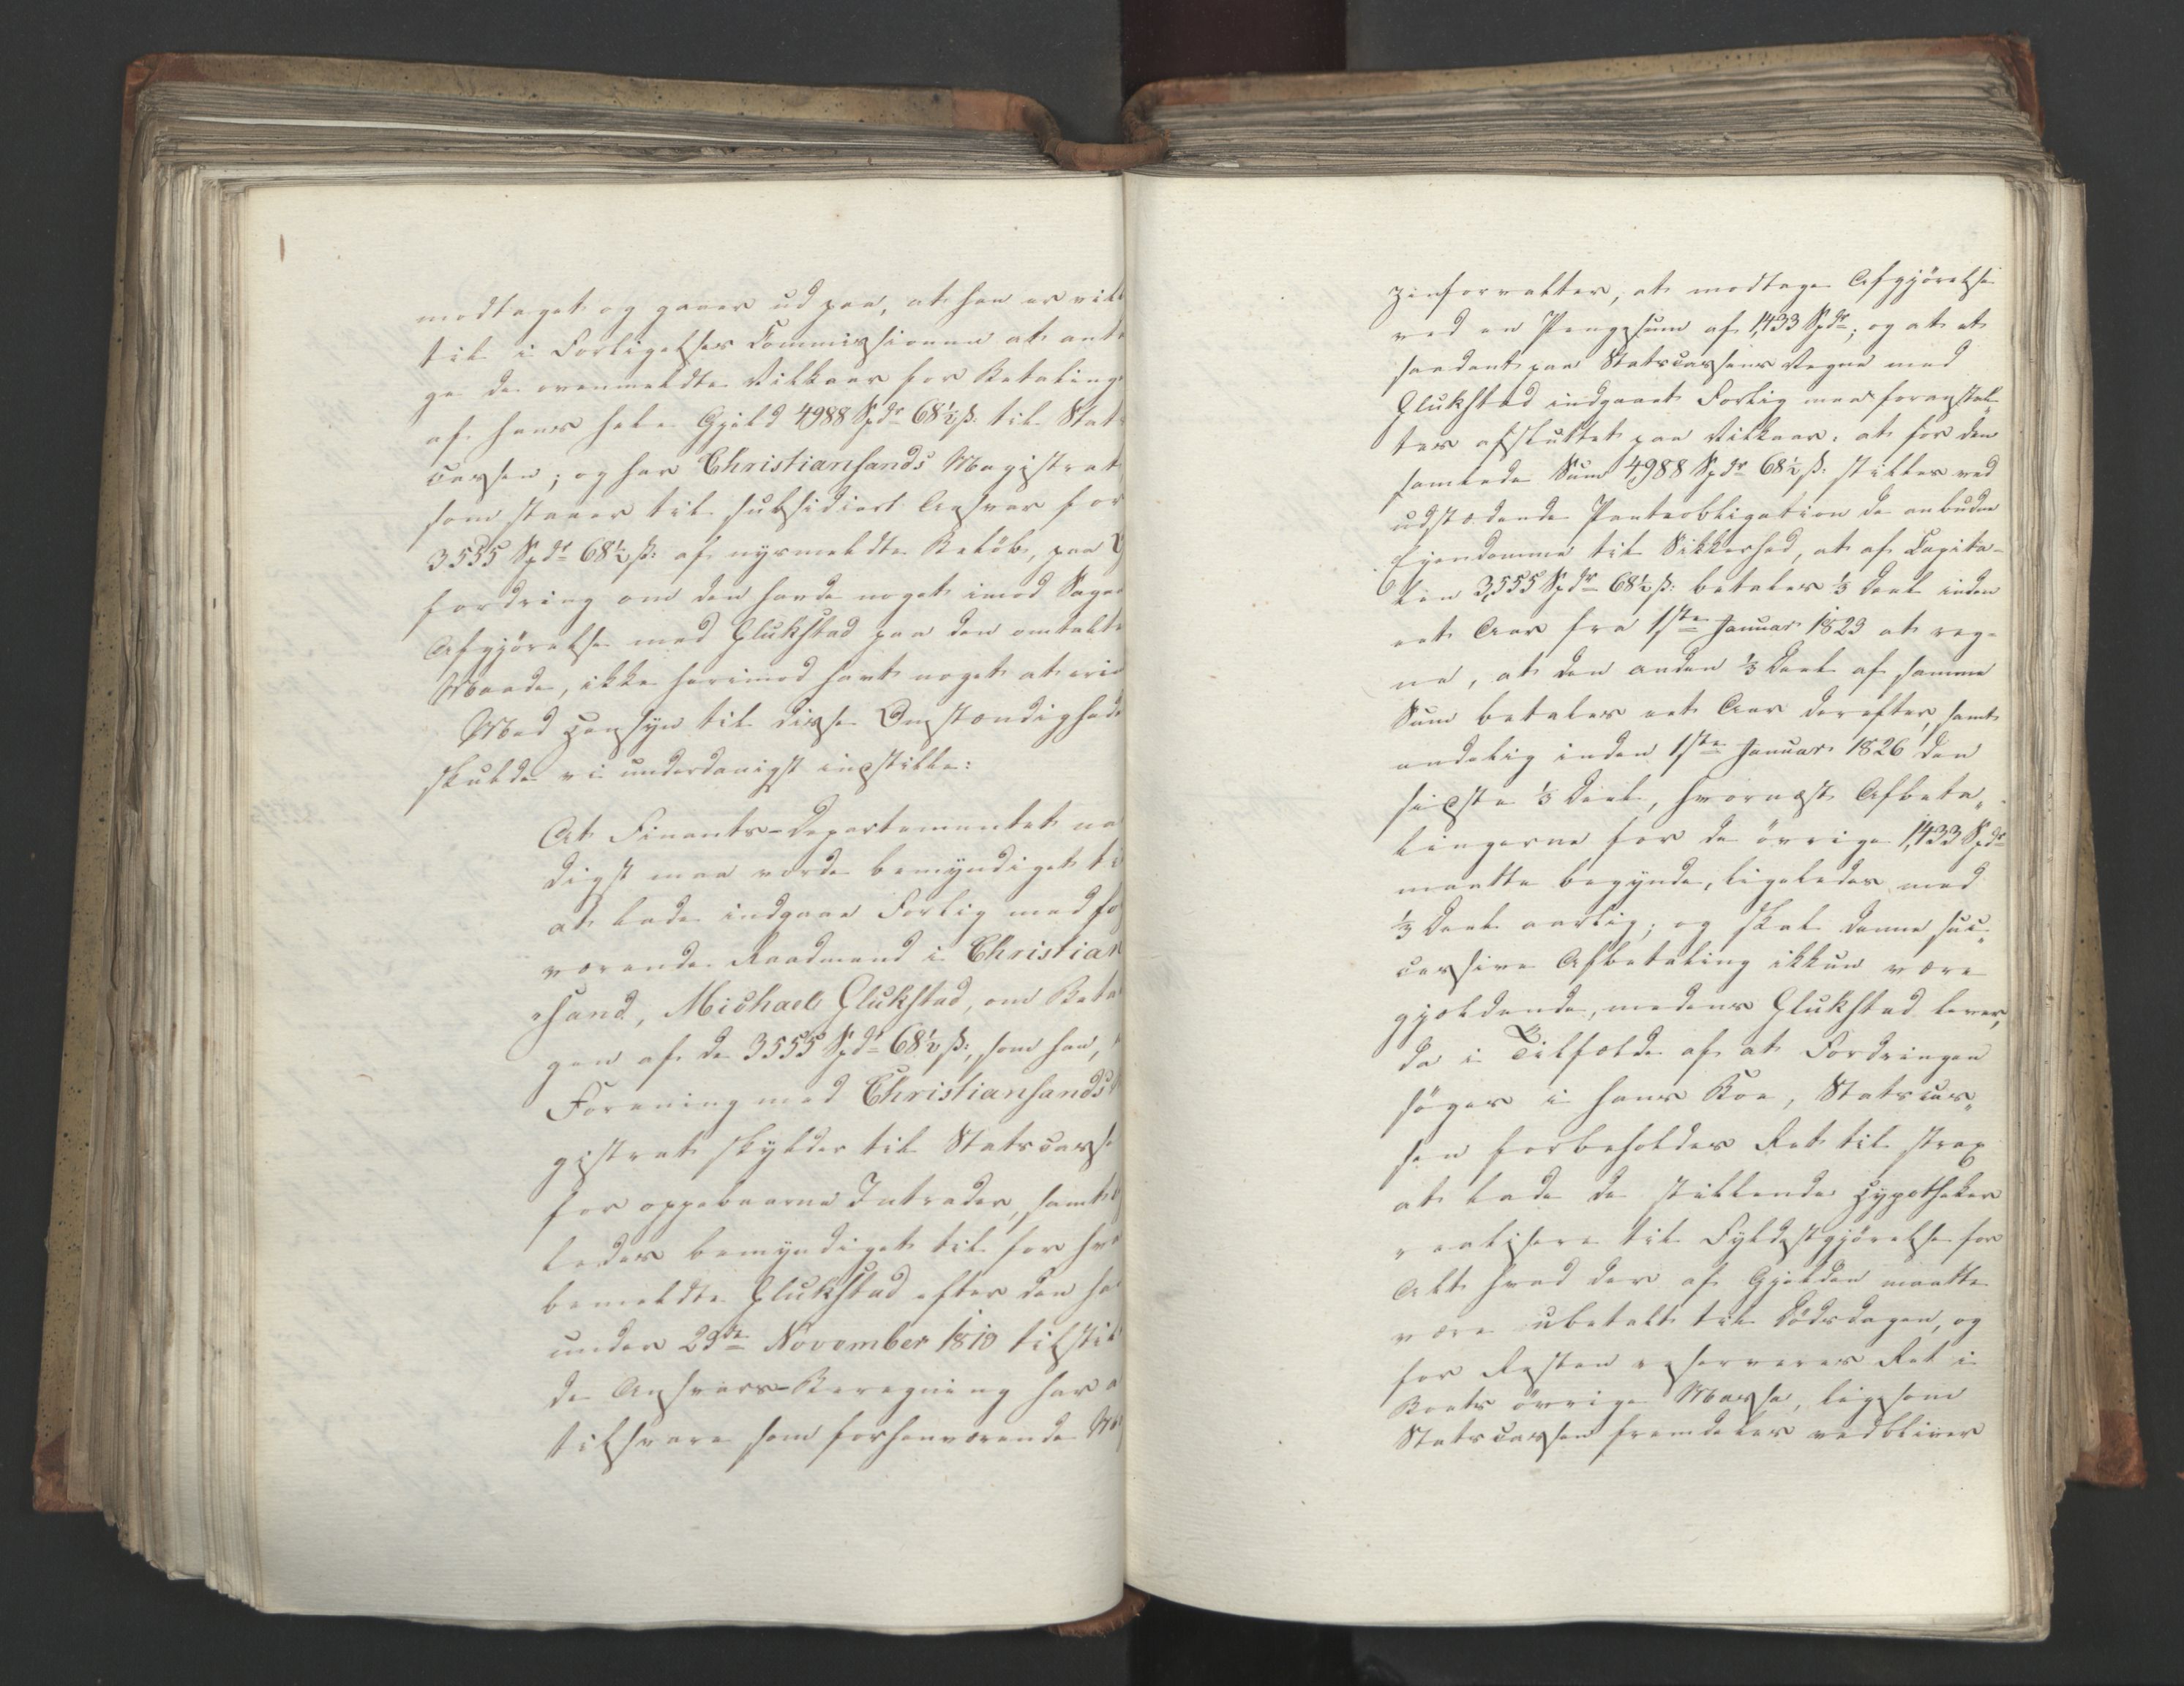 modtaget og gaaer ud paa, at han er vil
til i Forligelses Commissionen at anta
ge de ovenmeldte Vilkaar for Betaling
af hans hele Gjeld 4988 Spdr 68½ ß: til Stats
cassen; og har Christiansands Magistrat
som staaer til subsidiert Ansvar for
3555 Spdr 68½ ß: af nysmeldte Beløb, paa
fordring om den havde noget imod Sagens
Afgjörelse med Glukstad paa den omtalte
Maade, ikke herimod havt noget at erin
Med Hensyn til disse Omstændighede
skulde vi underdanigst indstille:
At Finants-Departementet na
digst maa vorde bemyndiget ti
at lade indgaae Forlig med fo
værende Raadmand i Christian
"sand, Michael Glukstad, om Beta
gen af de 3555 Spdr 68½ ß:, som han,
Forening med Christiansands
gistrat skylder til Statscasse
for oppebaarne Intrader, samt
ledes bemyndiget til for hva
bemeldte Glukstad efter den ha
under 29de November 1810 tilstil
de Ansvars-Beregning har a
tilsvare som forhenværende Ma
zinforvalter, at modtage Afgjörelse
ved en Pengesum af 1,433 Spdr; og at et
saadant paa Statscassens Vegne med
Glukstad indgaaet Forlig maa foranstal„
tes afsluttet paa Vilkaar: at for den
samlede Sum 4,988 Spdr 68½ ß: stilles ved
udstædende Panteobligation de anbudne
Ejendomme til Sikkerhed, at af Capita-
len 3,555 Spdr 68½ ß: betales ⅓ Deel inden
eet Aar fra 1ste Januar 1823 at reg-
ne, at den anden ⅓ Deel af samme
Sum betales eet Aar derefter, samt
endelig inden 1ste Januar 1826 den
sidste ⅓ Deel, hvornæst Afbeta„
lingerne for de övrige 1,433 Spdr
maatte begynde, ligeledes med
⅓ Deel aarlig; og skal denne suc„
cessive Afbetaling ikkun være
gjældende, medens Glukstad lever,
da i Tilfælde af at Fordringen
söges i hans Boe, Statscas„
sen forbeholdes Ret til strax
at lade de stillende Hypotheker
realisere til Fyldestgjörelse for
Alt hvad der af Gjelden maatte
være ubetalt til Dödsdagen, og
for Resten reserveres Ret i
Boets övrige Masse, ligesom
Statscassen fremdeles vedbliver